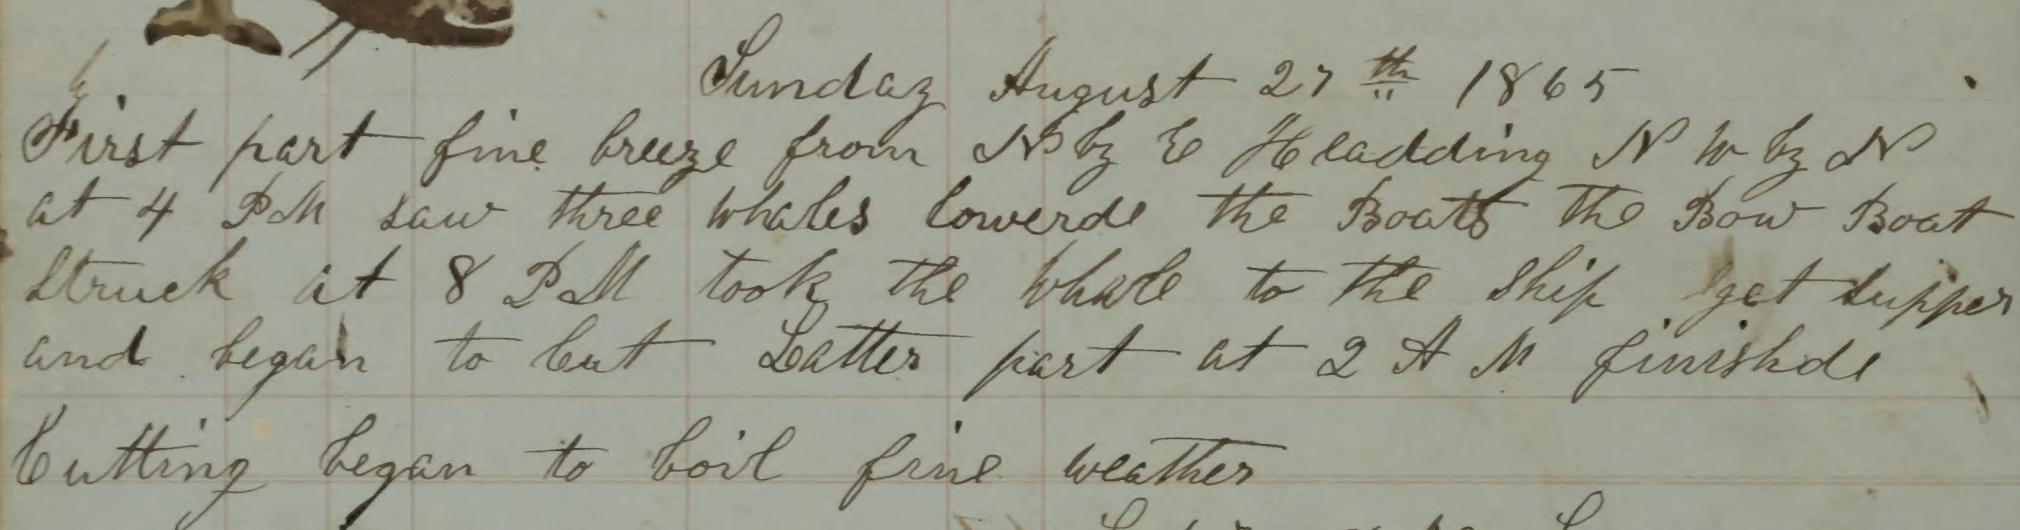 Sunday August 27th 1865
First part fine breeze from N by E Headding N W by N
at 4 P M saw three whales lowerde the Boats the Bow Boat
Struck at 8 P M took the whale to the ship get supper
and began to Cut Latter part at 2 A M finishde
Cutting began to boil fine weather